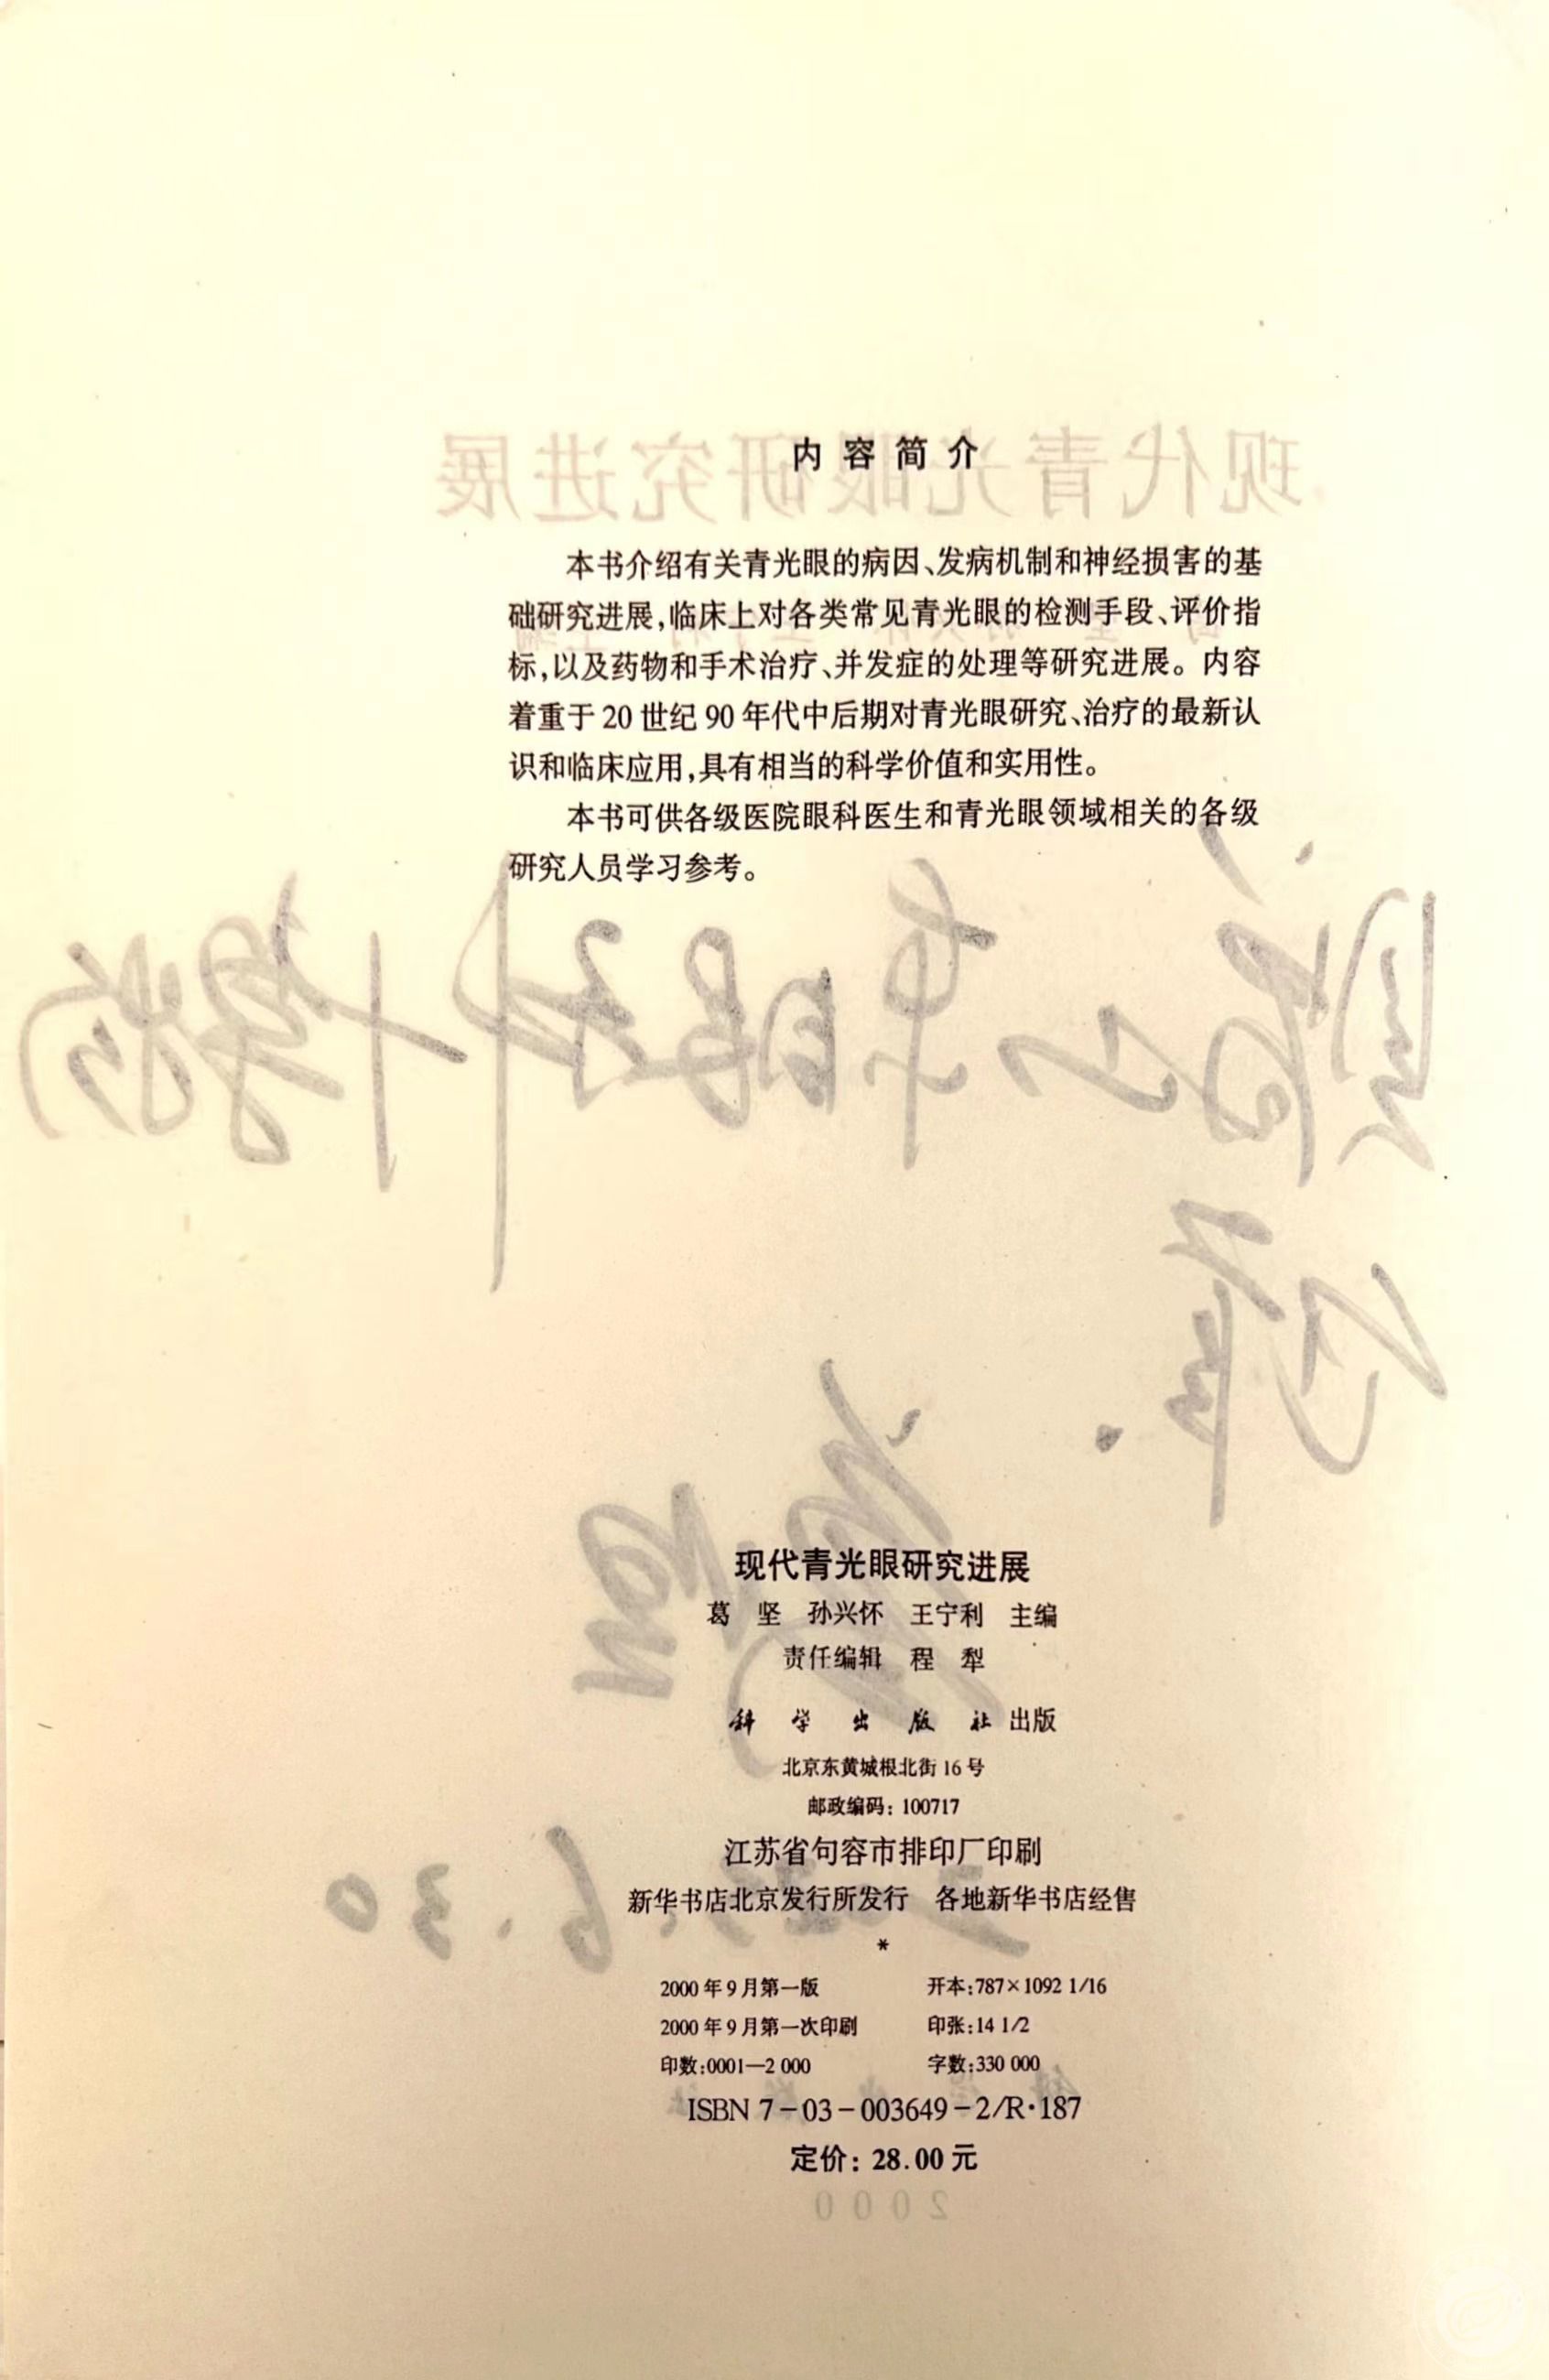 内容简介
本书介绍有关青光眼的病因、发病机制和神经损害的基
础研究进展,临床上对各类常见青光眼的检测手段、评价指
标,以及药物和手术治疗、并发症的处理等研究进展。内容
着重于 20 世纪 90 年代中后期对青光眼研究、治疗的最新认
识和临床应用,具有相当的科学价值和实用性。
本书可供各级医院眼科医生和青光眼领域相关的各级
研究人员学习参考。
现代青光眼研究进展
现代青光眼研究进展
葛 坚 孙兴怀 王宁利 主编
责任编辑 程 犁
科学出版社 出版
北京东黄城根北街 16 号
邮政编码: 100717
江苏省句容市排印厂印刷
新华书店北京发行所发行 各地新华书店经售
*
2000 年 9 月第一版 开本:787×1092 1/16
2000 年 9 月第一次印刷 印张:14 1/2
印数:0001—2 000 字数:330 000
ISBN 7-03-003649-2/R·187
定价: 28.00 元
2000